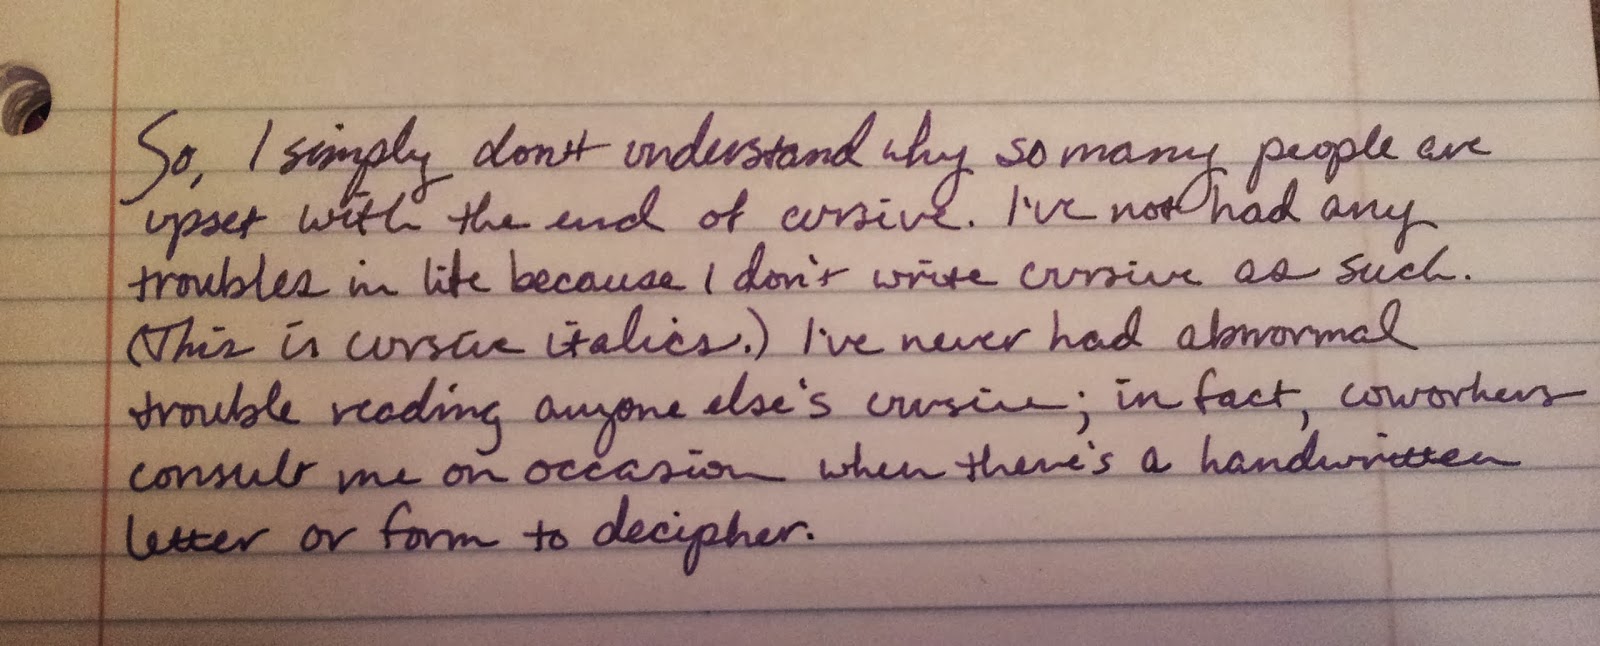 So, I simply don't understand why so many people are
upset with the end of cursive. I've not had any
troubles in life because I don't write cursive as such.
(This is cursive italics.) I've never had abnormal
trouble reading anyone else's cursive; in fact, coworkers
consult me on occasion when there's a handwritten
letter or form to decipher.